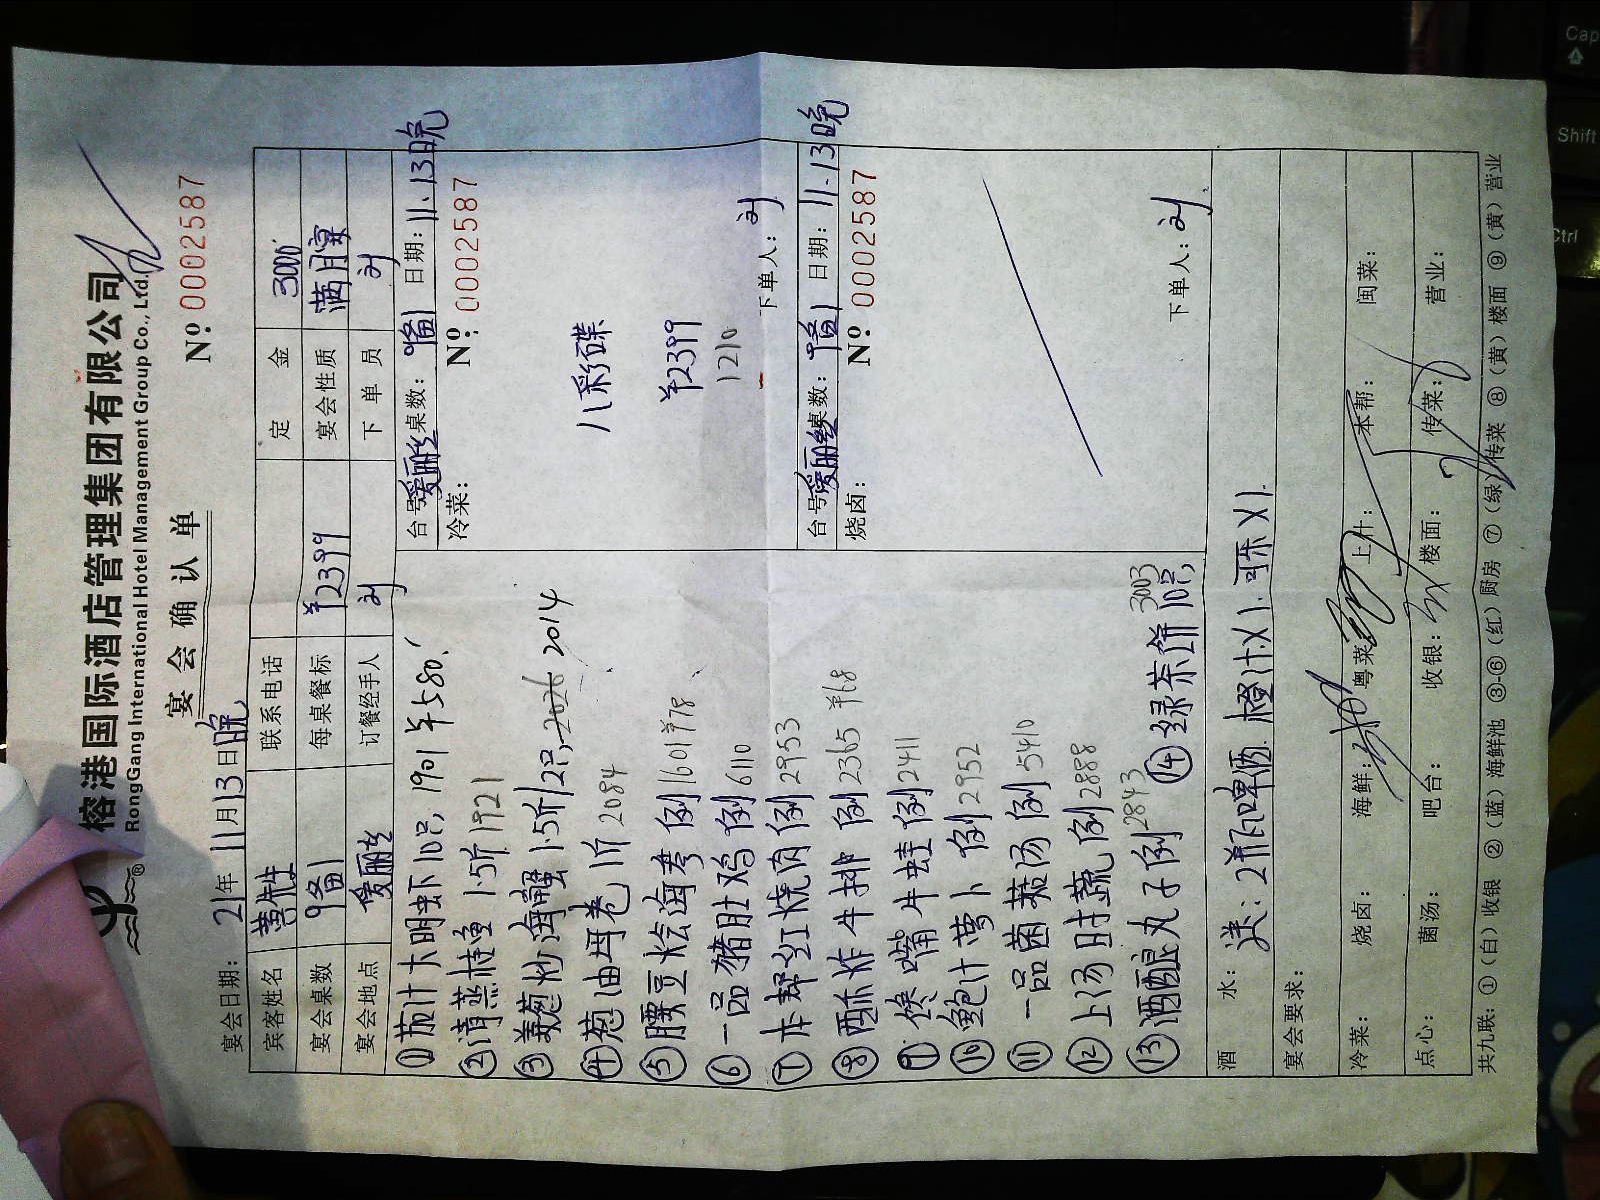 榕港国际酒店管理集团有限公司
RongGang International Hotel Management Group Co., Ltd.
宴会确认单
宴会日期: 21年 11月 13日 晚 № 0002587
宾客姓名 黄先生 联系电话 定金 3000
宴会桌数 9备1 每桌餐标 ¥2399 宴会性质 满月宴
宴会地点 爱丽丝 订餐经手人 刘 下单员 刘
①茄汁大明虾10只, 1901 ¥580
②清蒸桂鱼1.5斤 1921
③姜葱炒海蟹1.5斤/2只, 2026 2014
④葱油母卷1斤 2084
⑤腰豆烩海参 例 1601 ¥78
⑥一品猪肚鸡 例 6110
⑦本帮红烧肉 例 2953
⑧酥炸牛排 例 2365 ¥68
⑨馋嘴牛蛙 例 2411
⑩鲍汁萝卜 例 2952
⑪一品菌菇汤 例 5410
⑫上汤时蔬 例 2888
⑬酒酿丸子 例 2843
⑭绿茶饼10只, 3003
台号: 爱丽丝 桌数: 9备1 日期: 11.13晚
冷菜: №: 0002587
八彩碟
¥2399
1210
下单人: 刘
台号: 爱丽丝 桌数: 9备1 日期: 11.13晚
烧卤: № 0002587
下单人: 刘
酒水: 送: 2瓶啤酒. 橙汁X1. 可乐X1.
宴会要求:
冷菜: 烧卤: 海鲜: 粤菜: 上什: 本帮: 闽菜:
点心: 菌汤: 吧台: 收银: 楼面: 传菜: 营业:
共九联: ①(白)收银 ②(蓝)海鲜池 ③-⑥(红)厨房 ⑦(绿)传菜 ⑧(黄)楼面 ⑨(黄)营业
Cap
Shift
Ctrl